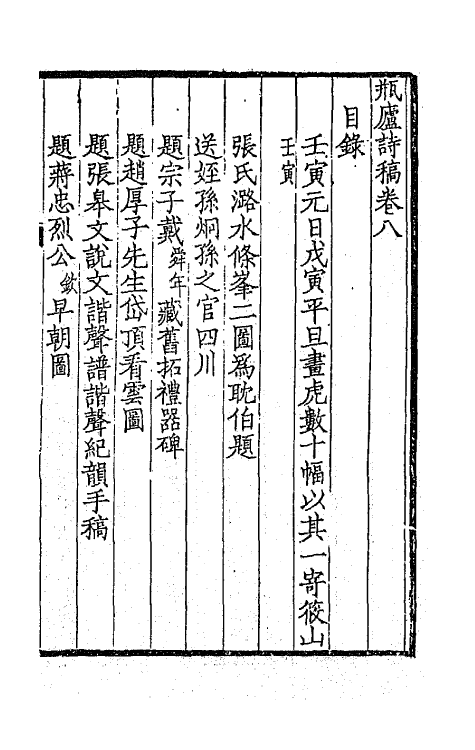 瓶廬詩稿卷八
目錄
壬寅元日戊寅平旦畫虎數十幅以其一寄筱山
壬寅
張氏潞水條峯二圖為耽伯題
送姪孫炯孫之官四川
題宗子戴舜年藏舊拓禮器碑
題趙厚子先生岱頂看雲圖
題張皋文說文諧聲譜諧聲紀韻手稿
題蔣忠烈公欽早朝圖